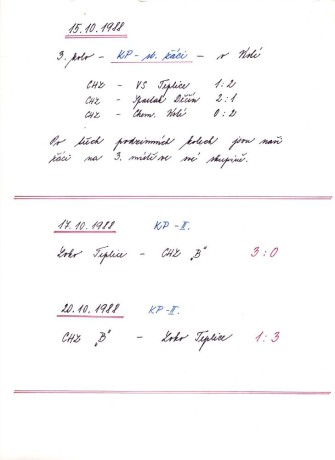 15.10.1988
3. kolo - KP - st. žáci - v Ústí
CHZ - VS Teplice 1:2
CHZ - Spartak Děčín 2:1
CHZ - Chem. Ústí 0:2
Po třech podzimních kolech jsou naši
žáci na 3. místě ve své skupině.
17.10.1988 KP - II.
Loko Teplice - CHZ „B" 3:0
20.10.1988 KP - II.
CHZ „B" - Loko Teplice 1:3